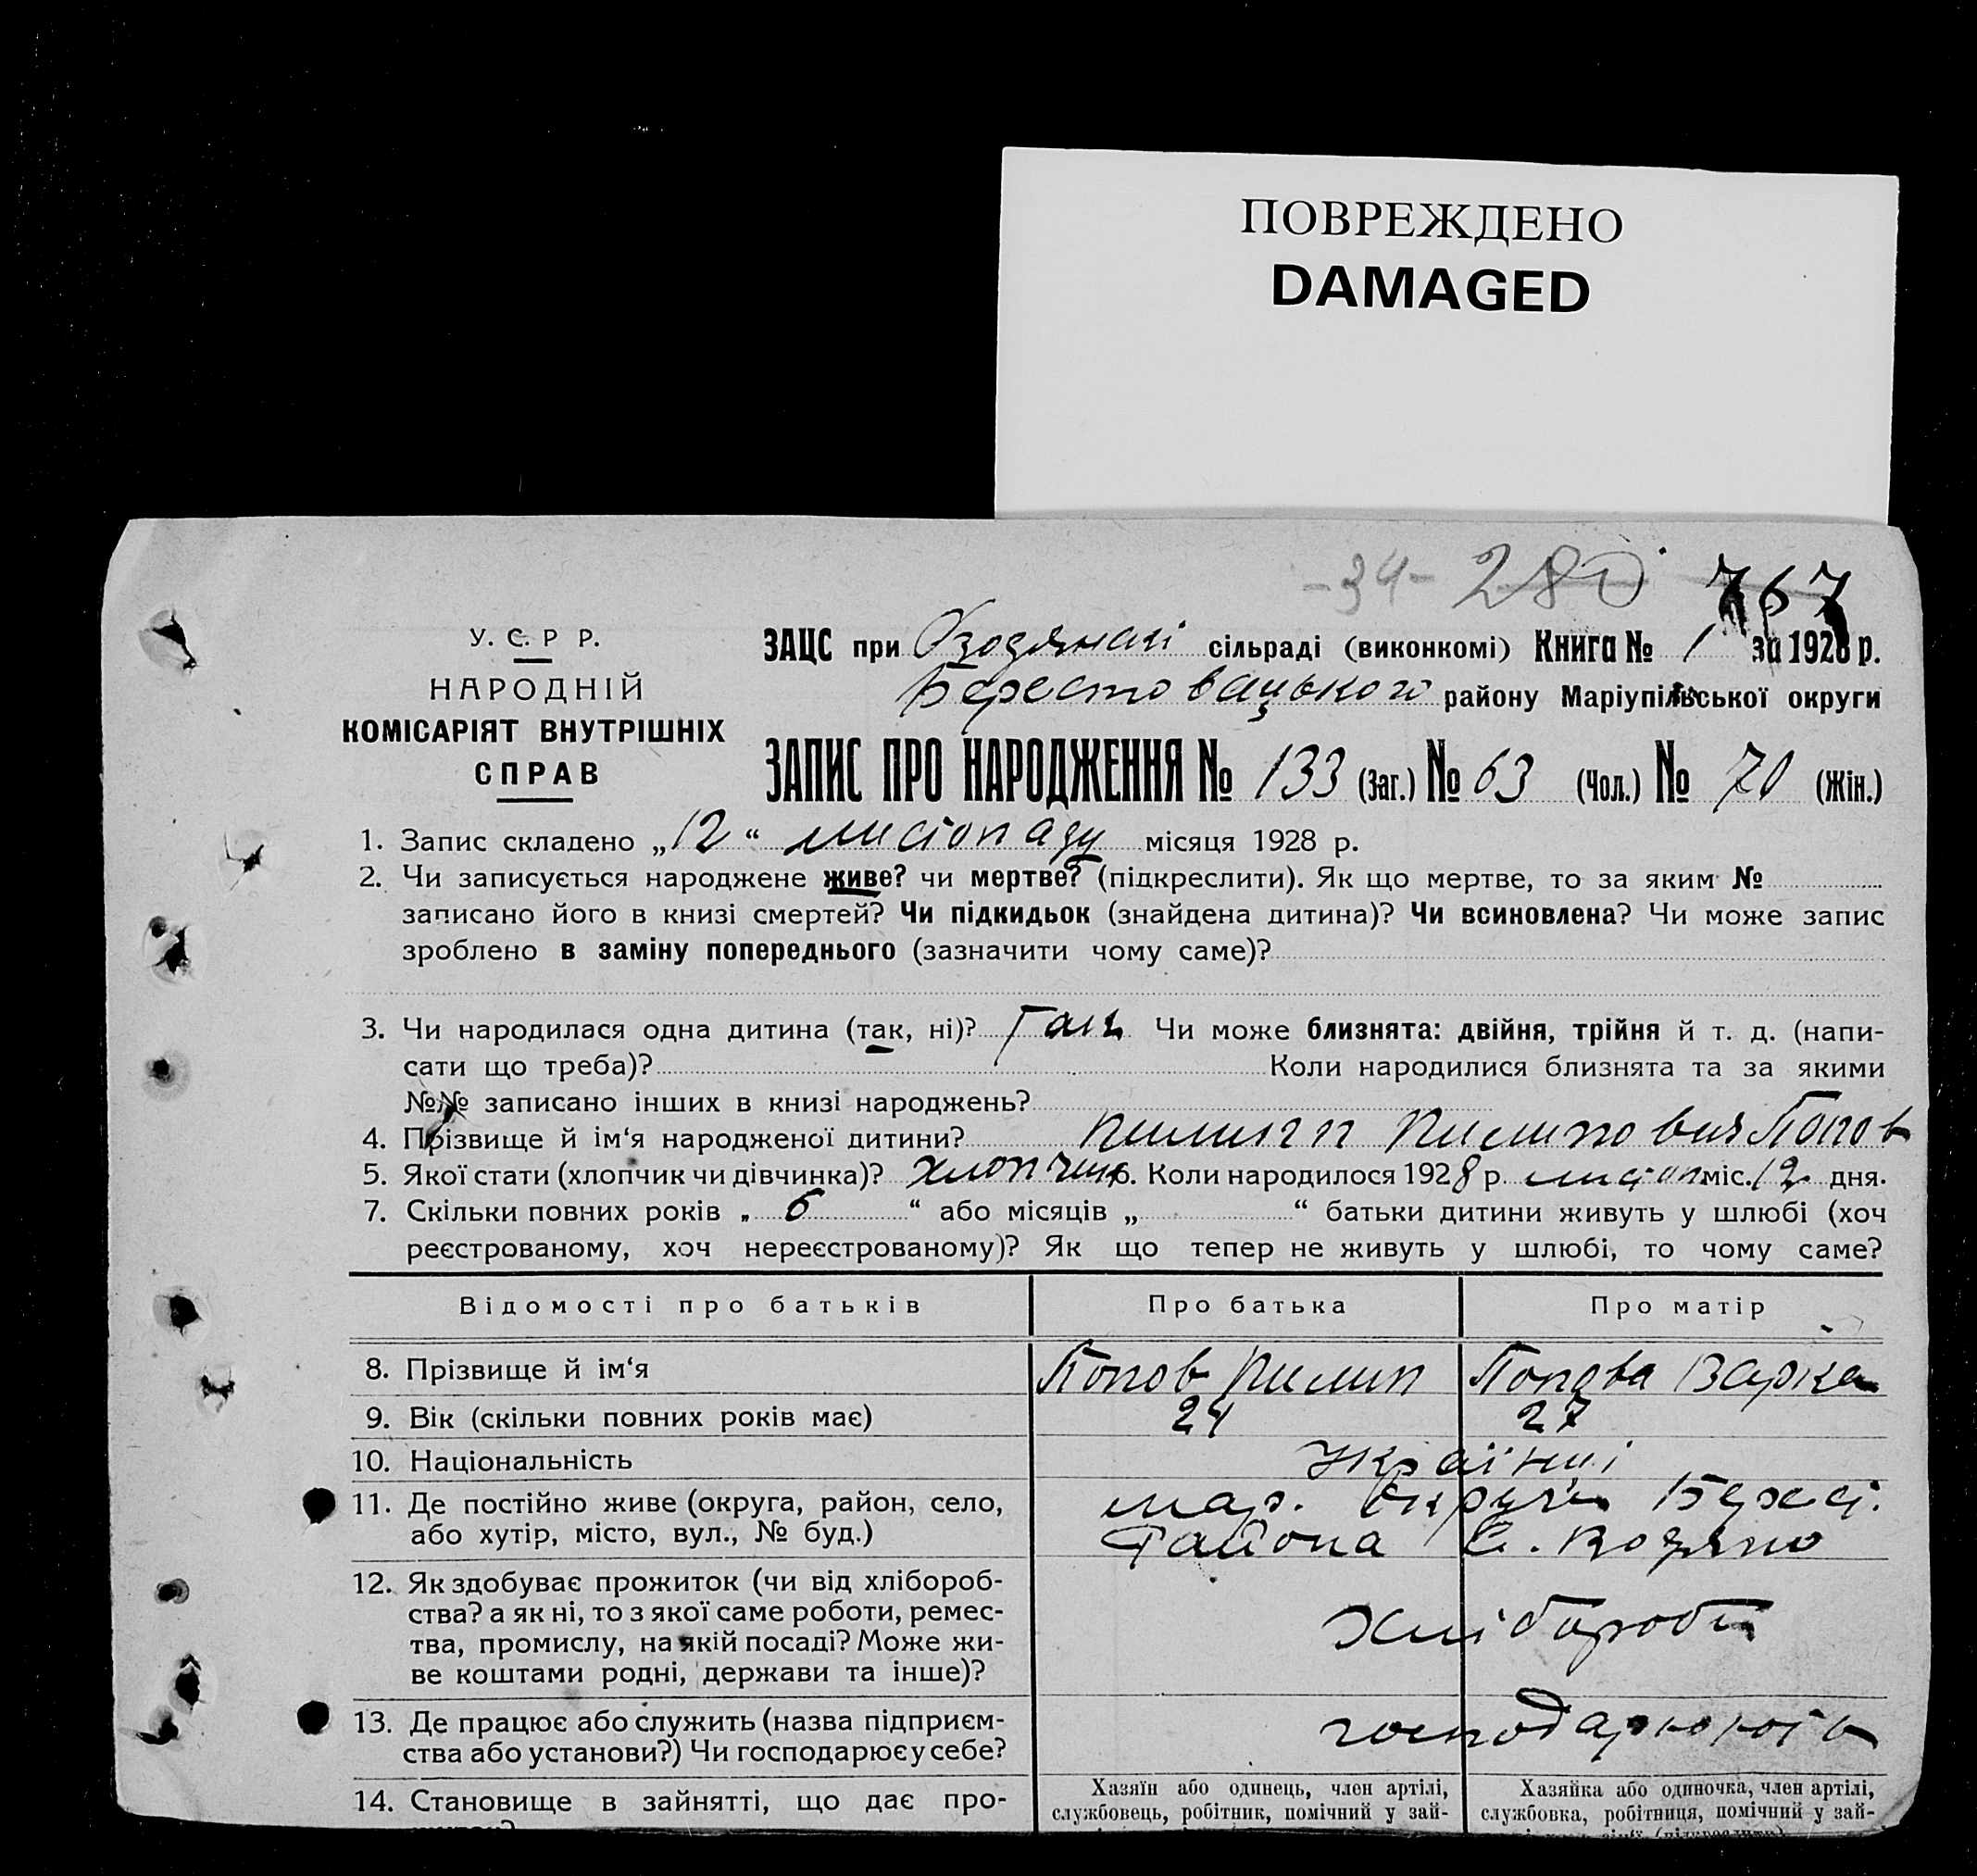 ПОВРЕЖДЕНО
DAMAGED
-34- 280 767
У. С. Р Р.
НАРОДНІЙ
КОМІСАРІЯТ ВНУТРІШНІХ
СПРАВ
ЗАЦС при сільраді (виконкомі) Книга № 1 за 1928 р.
району Маріупільської округи
ЗАПИС ПРО НАРОДЖЕННЯ № 133 (Заг.) № 63 (Чол.) № 70 (Жін.)
1. Запис складено „12“ листопаду місяця 1928 р.
2. Чи записується народжене живе? чи мертве? (підкреслити). Як що мертве, то за яким №
записано його в книзі смертей? Чи підкидьок (знайдена дитина)? Чи всиновлена? Чи може запис
зроблено в заміну попереднього (зазначити чому саме)?
3. Чи народилася одна дитина (так, ні)? Так Чи може близнята: двійня, трійня й т. д. (напи-
сати що треба)? Коли народилися близнята та за якими
№№ записано інших в книзі народжень?
4. Прізвище й ім‘я народженої дитини? Попов
5. Якої стати (хлопчик чи дівчинка)? хлопчик 6. Коли народилося 1928 р. листоп міс. 12 дня.
7. Скільки повних років „ 6 “ або місяців „ “ батьки дитини живуть у шлюбі (хоч
реєстрованому, хоч нереєстрованому)? Як що тепер не живуть у шлюбі, то чому саме?
Відомості про батьків Про батька Про матір
8. Прізвище й ім‘я Попов Пилип Попова Варка
9. Вік (скільки повних років має) 24 27
10. Національність Українці
11. Де постійно живе (округа, район, село,
або хутір, місто, вул., № буд.)
мар. округи Берест.
района С. Водяно
12. Як здобуває прожиток (чи від хлібороб-
ства? а як ні, то з якої саме роботи, ремес-
тва, промислу, на якій посаді? Може жи-
ве коштами родні, держави та інше)?
Хлібороби
13. Де працює або служить (назва підприєм-
ства або установи?) Чи господарює у себе?
господарюють
14. Становище в зайнятті, що дає про-
Хазяїн або одинець, член артілі,
службовець, робітник, помічний у зай-
Хазяйка або одиночка, член артілі,
службовка, робітниця, помічний у зай-